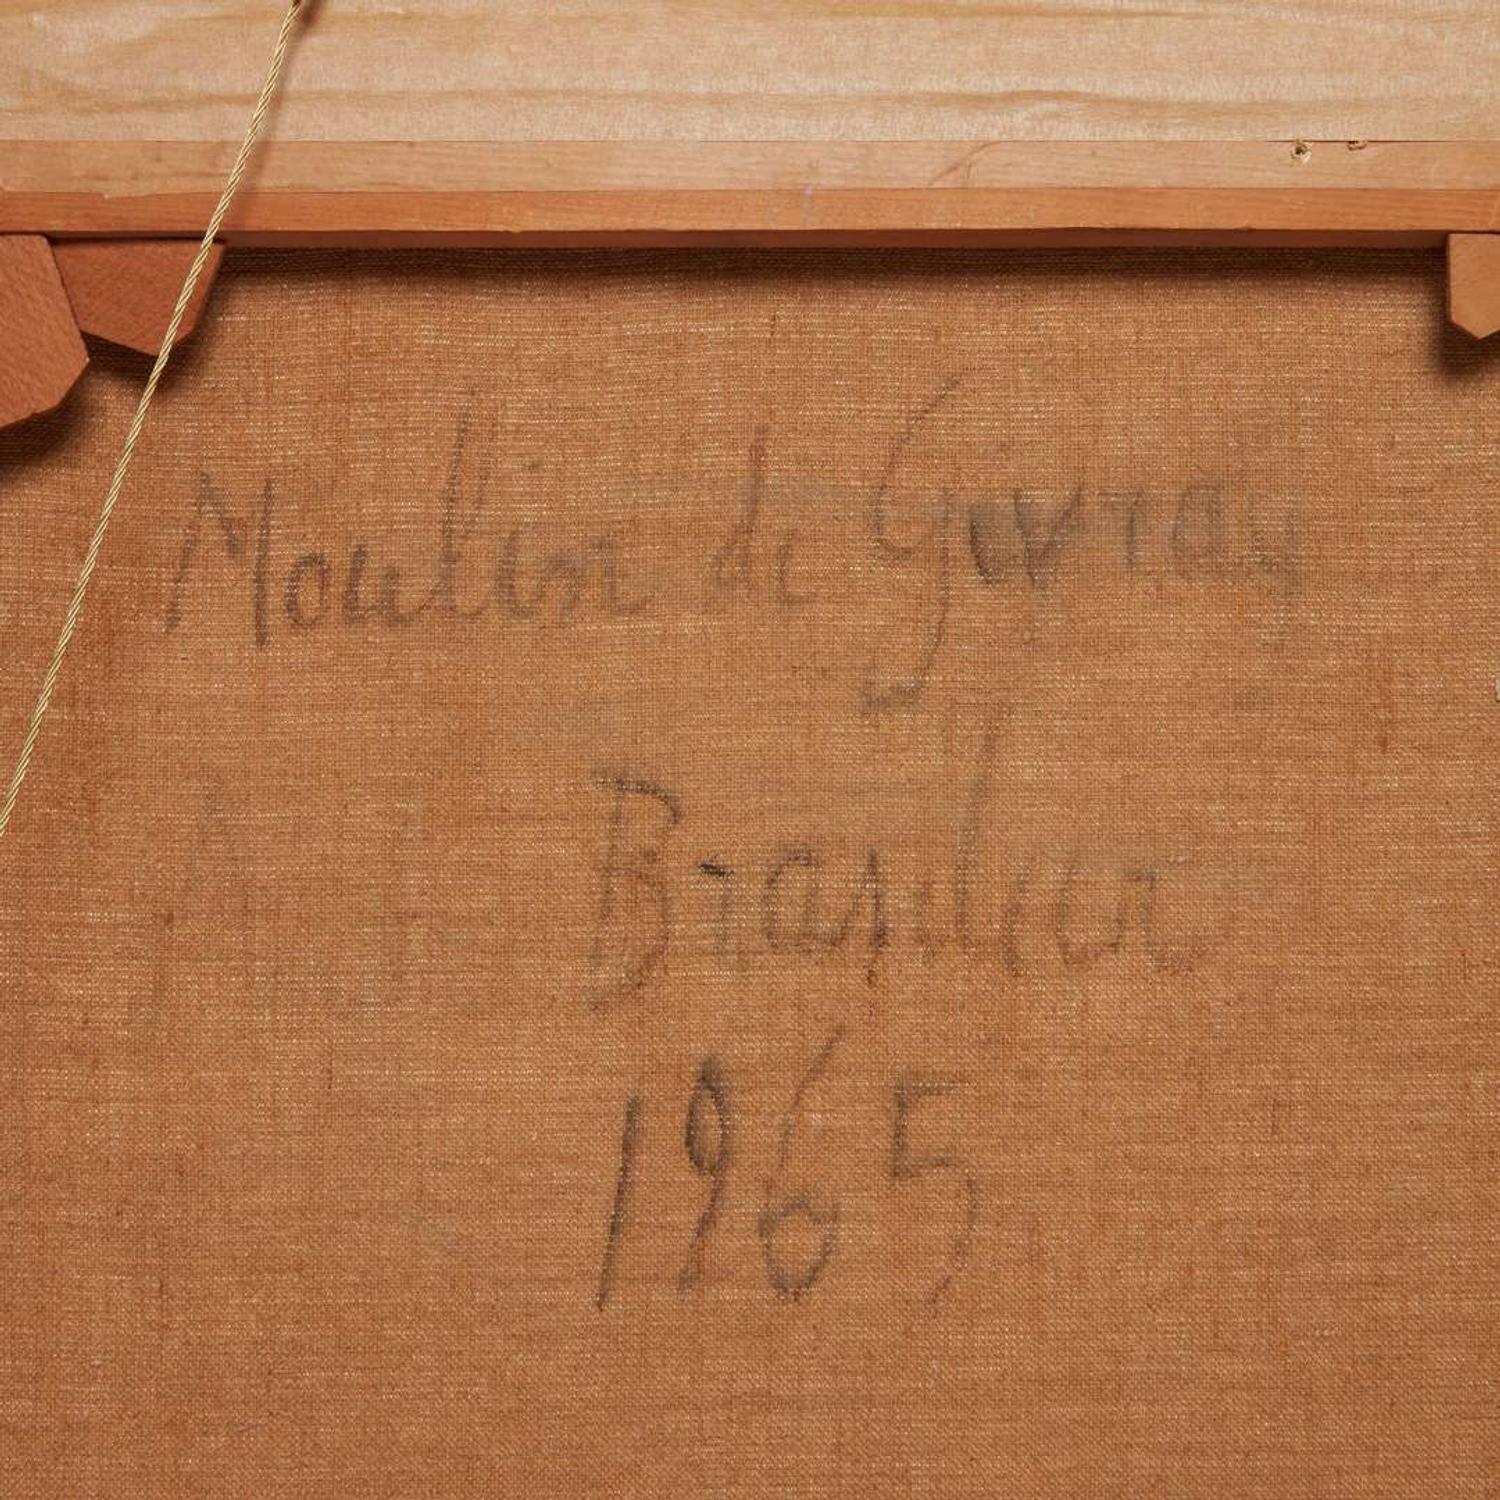 Moulin de Givray
Brasilier
1965